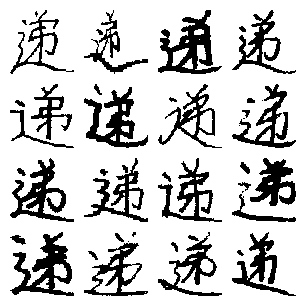 递递递递
递递递递
递递递递
递递递递